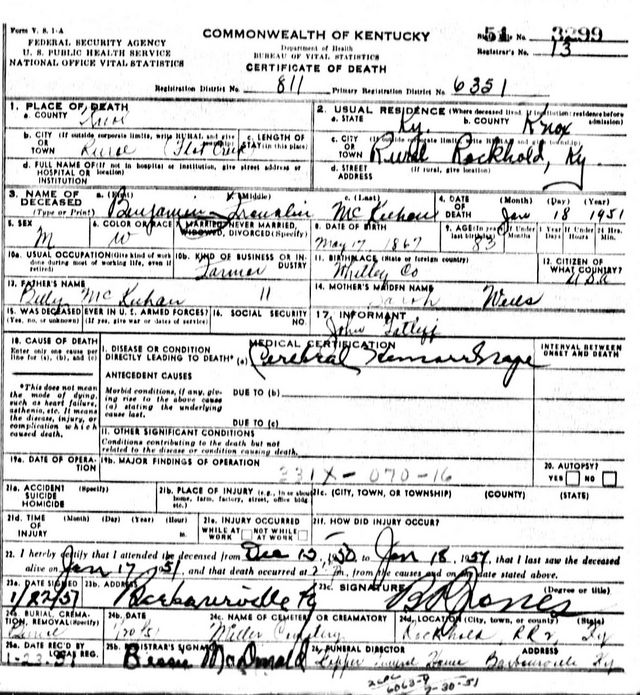 Form V. S. 1-A
FEDERAL SECURITY AGENCY
U. S. PUBLIC HEALTH SERVICE
NATIONAL OFFICE VITAL STATISTICS
COMMONWEALTH OF KENTUCKY
Department of Health
BUREAU OF VITAL STATISTICS
CERTIFICATE OF DEATH
51 3299
Registrar's No. 13
Registration District No. 811 Primary Registration District No. 6351
1. PLACE OF DEATH
a. COUNTY Knox
2. USUAL RESIDENCE (Where deceased lived. If institution: residence before admission)
a. STATE Ky. b. COUNTY Knox
b. CITY (If outside corporate limits, write RURAL and give
OR TOWN Rural (Flat Creek
c. LENGTH OF STAY (in this place)
c. CITY
OR TOWN Rural Rockhold, Ky.
d. FULL NAME OF (If not in hospital or institution, give street address or location)
HOSPITAL OR INSTITUTION
d. STREET ADDRESS (If rural, give location)
3. NAME OF DECEASED (Type or Print)
a. (First) b. (Middle) c. (Last)
Benjamin Franklin McKeehan
4. DATE OF DEATH (Month) (Day) (Year)
Jan 18 1951
5. SEX M
6. COLOR OR RACE W
7. MARRIED, NEVER MARRIED, WIDOWED, DIVORCED (Specify)
8. DATE OF BIRTH May 17, 1867
9. AGE (In years last birthday) 83 If Under 1 Year If Under 24 Hrs.
Months Days Hours Min.
10a. USUAL OCCUPATION (Give kind of work done during most of working life, even if retired)
10b. KIND OF BUSINESS OR INDUSTRY
Farmer
11. BIRTHPLACE (State or foreign country) Whitley Co
12. CITIZEN OF WHAT COUNTRY? USA
13. FATHER'S NAME Billy McKeehan
14. MOTHER'S MAIDEN NAME Sarah
15. WAS DECEASED EVER IN U. S. ARMED FORCES?
(Yes, no, or unknown) (If yes, give war or dates of service)
16. SOCIAL SECURITY NO.
17. INFORMANT John
18. CAUSE OF DEATH
Enter only one cause per line for (a), (b), and (c)
MEDICAL CERTIFICATION
INTERVAL BETWEEN ONSET AND DEATH
I. DISEASE OR CONDITION
DIRECTLY LEADING TO DEATH* (a) Cerebral Hemorrhage
*This does not mean the mode of dying, such as heart failure, asthenia, etc. It means the disease, injury, or complication which caused death.
ANTECEDENT CAUSES
Morbid conditions, if any, giving rise to the above cause (a) stating the underlying cause last.
DUE TO (b)
DUE TO (c)
II. OTHER SIGNIFICANT CONDITIONS
Conditions contributing to the death but not related to the disease or condition causing death.
19a. DATE OF OPERATION
19b. MAJOR FINDINGS OF OPERATION
331X-070-16
20. AUTOPSY?
YES NO
21a. ACCIDENT SUICIDE HOMICIDE (Specify)
21b. PLACE OF INJURY (e.g., in or about home, farm, factory, street, office bldg etc.)
21c. (CITY, TOWN, OR TOWNSHIP) (COUNTY) (STATE)
21d. TIME OF INJURY (Month) (Day) (Year) (Hour) m
21e. INJURY OCCURRED
WHILE AT WORK NOT WHILE AT WORK
21f. HOW DID INJURY OCCUR?
22. I hereby certify that I attended the deceased from Dec 15, 1950 to Jan 18, 1951, that I last saw the deceased
alive on Jan 17, 1951, and that death occurred at m., from the causes and on the date stated above.
23a. DATE SIGNED 1/22/51
23b. ADDRESS Barbourville Ky
23c. SIGNATURE Jones (Degree or title)
24a. BURIAL, CREMATION, REMOVAL (Specify) Burial
24b. DATE
24c. NAME OF CEMETERY OR CREMATORY Cemetery
24d. LOCATION (City, town, or county) (State)
Rockhold, RR2, Ky
25a. DATE REC'D BY LOCAL REG. 1-23-51
25b. REGISTRAR'S SIGNATURE Bessie McDonald
26. FUNERAL DIRECTOR ADDRESS
Funeral Home Barbourville Ky